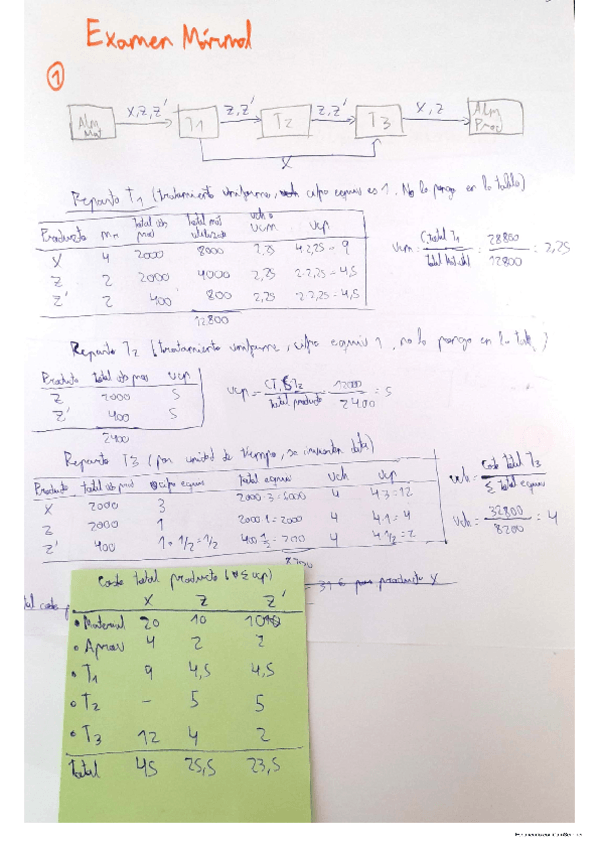 Examen Mármol
1
X,Z,Z' Z,Z' Z,Z' X,Z
Alm Mat T1 T2 T3 Alm Prod
X
Reparto T1 (tratamiento uniforme, cuipo equiv es 1. No lo pongo en la tabla)
Producto total ob prod total mat utilizado ucm ucp
X 4 2000 8000 2,25 4·2,25 = 9
Z 2 2000 4000 2,25 2·2,25 = 4,5
Z' 2 400 800 2,25 2·2,25 = 4,5
12800
ucm = C.total T1 / total mat util = 28800 / 12800 = 2,25
Reparto T2 (tratamiento uniforme, cuipo equiv 1, no lo pongo en la tabla)
Producto total ob prod ucp
Z 2000 5
Z' 400 5
2400
ucp = / total producto = 12000 / 2400 = 5
Reparto T3 (por unidad de tiempo, se inventan data)
Producto total ob prod cuipo equiv total equiv uch ucp
X 2000 3 2000·3 = 6000 4 4·3 = 12
Z 2000 1 2000·1 = 2000 4 4·1 = 4
Z' 400 1·1/2 = 1/2 400·1/2 = 200 4 4·1/2 = 2
uch = Coste total T3 / Σ total equiv
uch = 32800 / 8200 = 4
31 € por producto X
Coste total producto (Σ ucp)
X Z Z'
• Material 20 10 10
• Aprov 4 2 2
• T1 9 4,5 4,5
• T2 - 5 5
• T3 12 4 2
Total 45 25,5 23,5